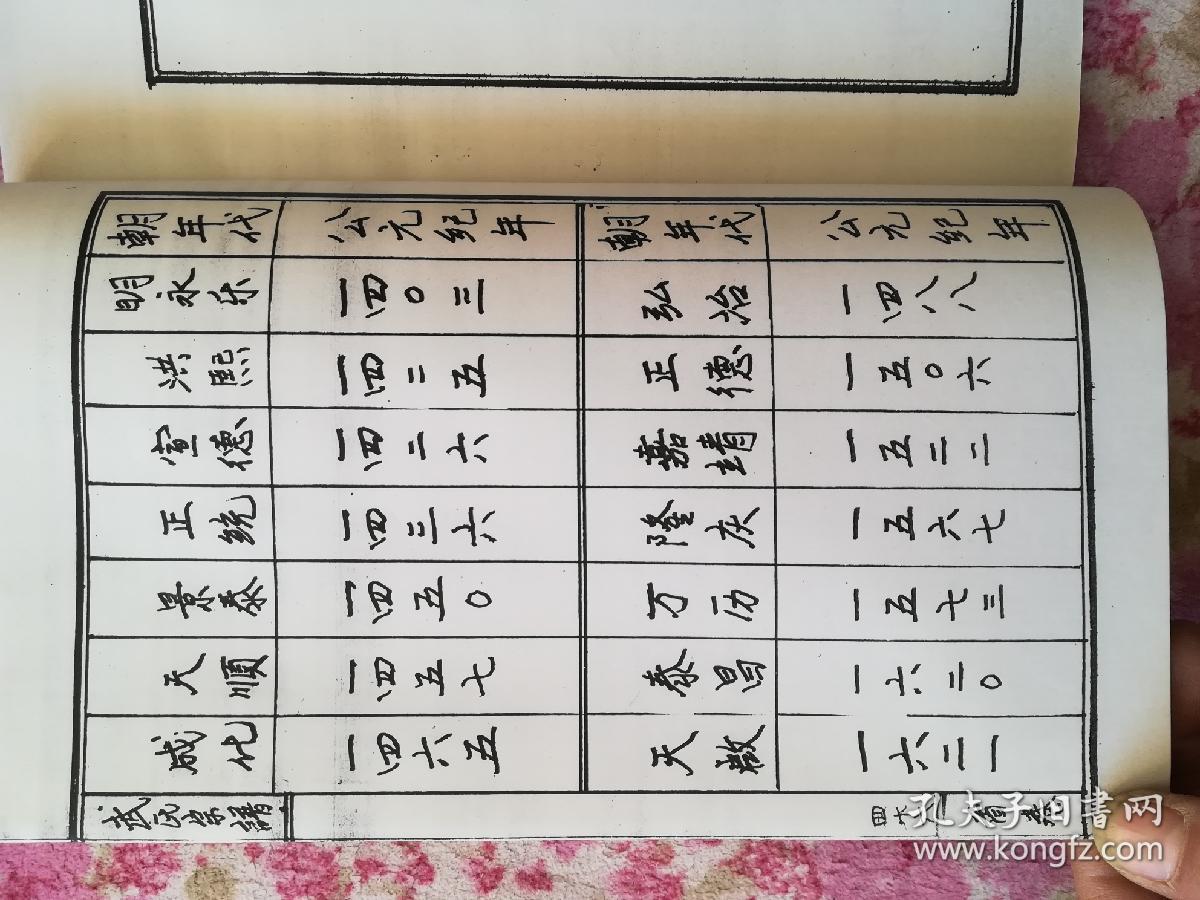 朝年代 公元纪年 朝年代 公元纪年
明永乐 一四〇三 弘治 一四八八
洪熙 一四二五 正德 一五〇六
宣德 一四二六 嘉靖 一五二二
正统 一四三六 隆庆 一五六七
景泰 一四五〇 万历 一五七三
天順 一四五七 泰昌 一六二〇
成化 一四六五 天啟 一六二一
武氏宗譜
孔夫子旧書网
www.kongfz.com